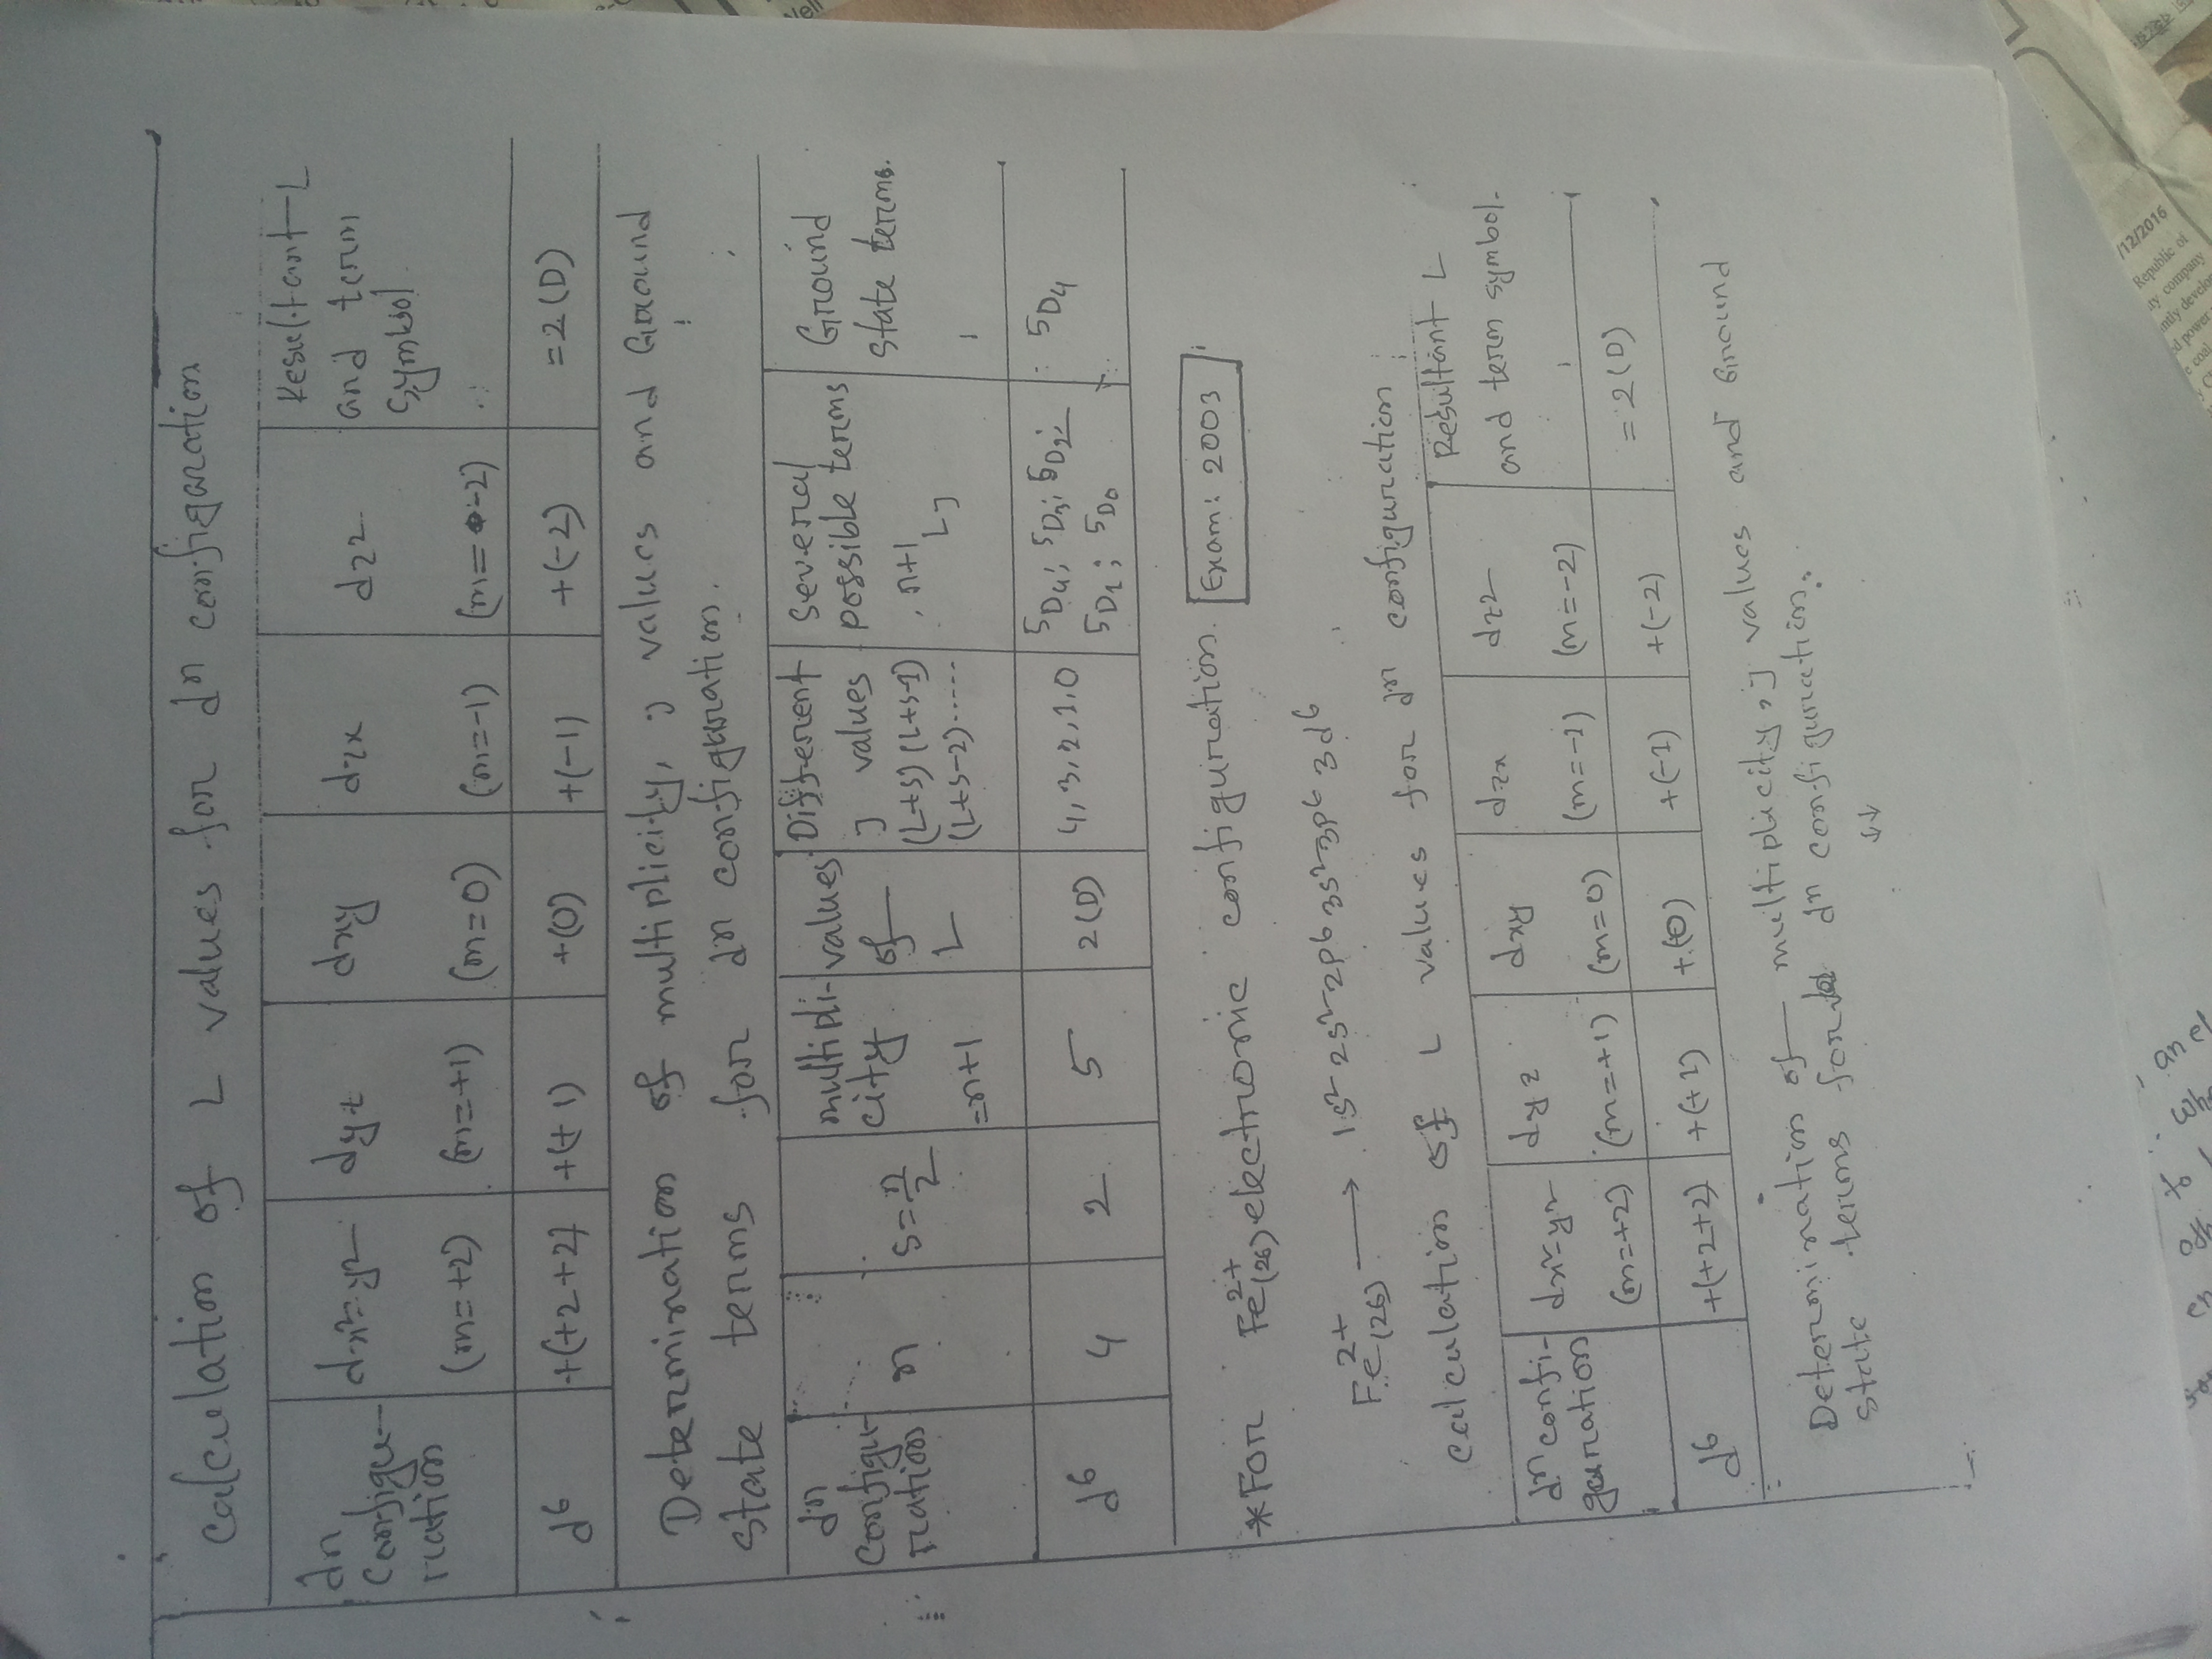 Calculation of L values for dn configuration
dn Configuration
dx²-y² (m=+2)
dyz (m=+1)
dxy (m=0)
dzx (m=-1)
dz2 (m=-2)
Resultant L and term symbol
d6
+(+2+2)
+(+1)
+(0)
+(-1)
+(-2)
=2(D)
Determination of multiplicity, J values and Ground
state terms for dn configuration.
dn Configuration
n
s=n/2
multiplicity =n+1
values of L
Different J values (L+S) (L+S-1) (L+S-2).....
Several possible terms n+1 LJ
Ground state terms.
d6
4
2
5
2(D)
4, 3, 2, 1, 0
5D4; 5D3; 5D2;
5D1; 5D0
5D4
*For Fe2+(26) electronic configuration. Exam: 2003
Fe2+(26) → 1s² 2s² 2p6 3s² 3p6 3d6
calculation of L values for dn configuration
dn configuration
dx²-y² (m=+2)
dyz (m=+1)
dxy (m=0)
dzx (m=-1)
dz2 (m=-2)
Resultant L and term symbol.
d6
+(+2+2)
+(+1)
+(0)
+(-1)
+(-2)
=2(D)
Determination of multiplicity, J values and Ground
state terms for dn configuration.
↓↓
/12/2016
Republic of
ity company